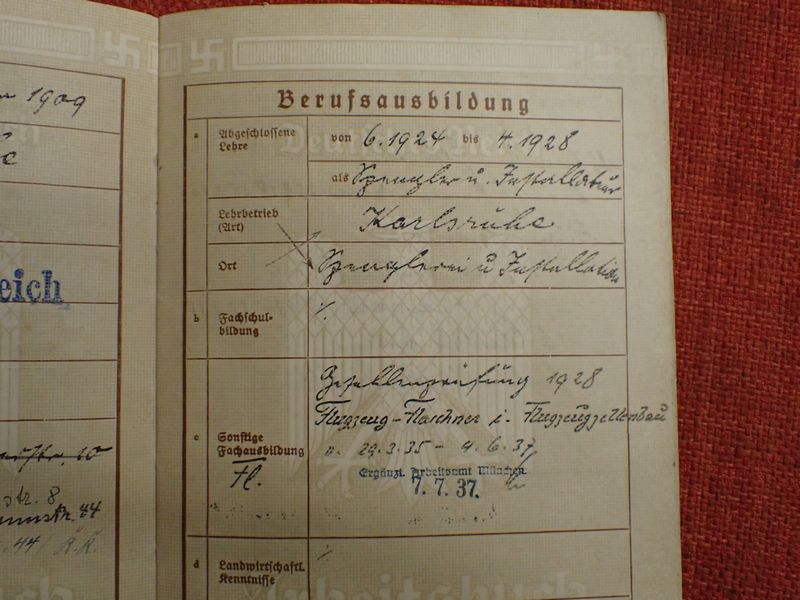 1909
eich
str. 10
str. 8
44
.44/ K.K.
Berufsausbildung
a Abgeschlossene Lehre von 6.1924 bis 4.1928
als Spengler u. Installateur
Lehrbetrieb (Art) Karlsruhe
Ort Spenglerei u Installation
b Fachschul-
bildung ⁒
Gesellenprüfung 1928
Flugzeug- i. Flugzeugzellenbau
c Sonstige
Fachausbildung 29.3.35 - 4.6.37
Fl.
Ergänzt. Arbeitsamt München
7.7.37.
d Landwirtschaftl.
Kenntnisse ⁒